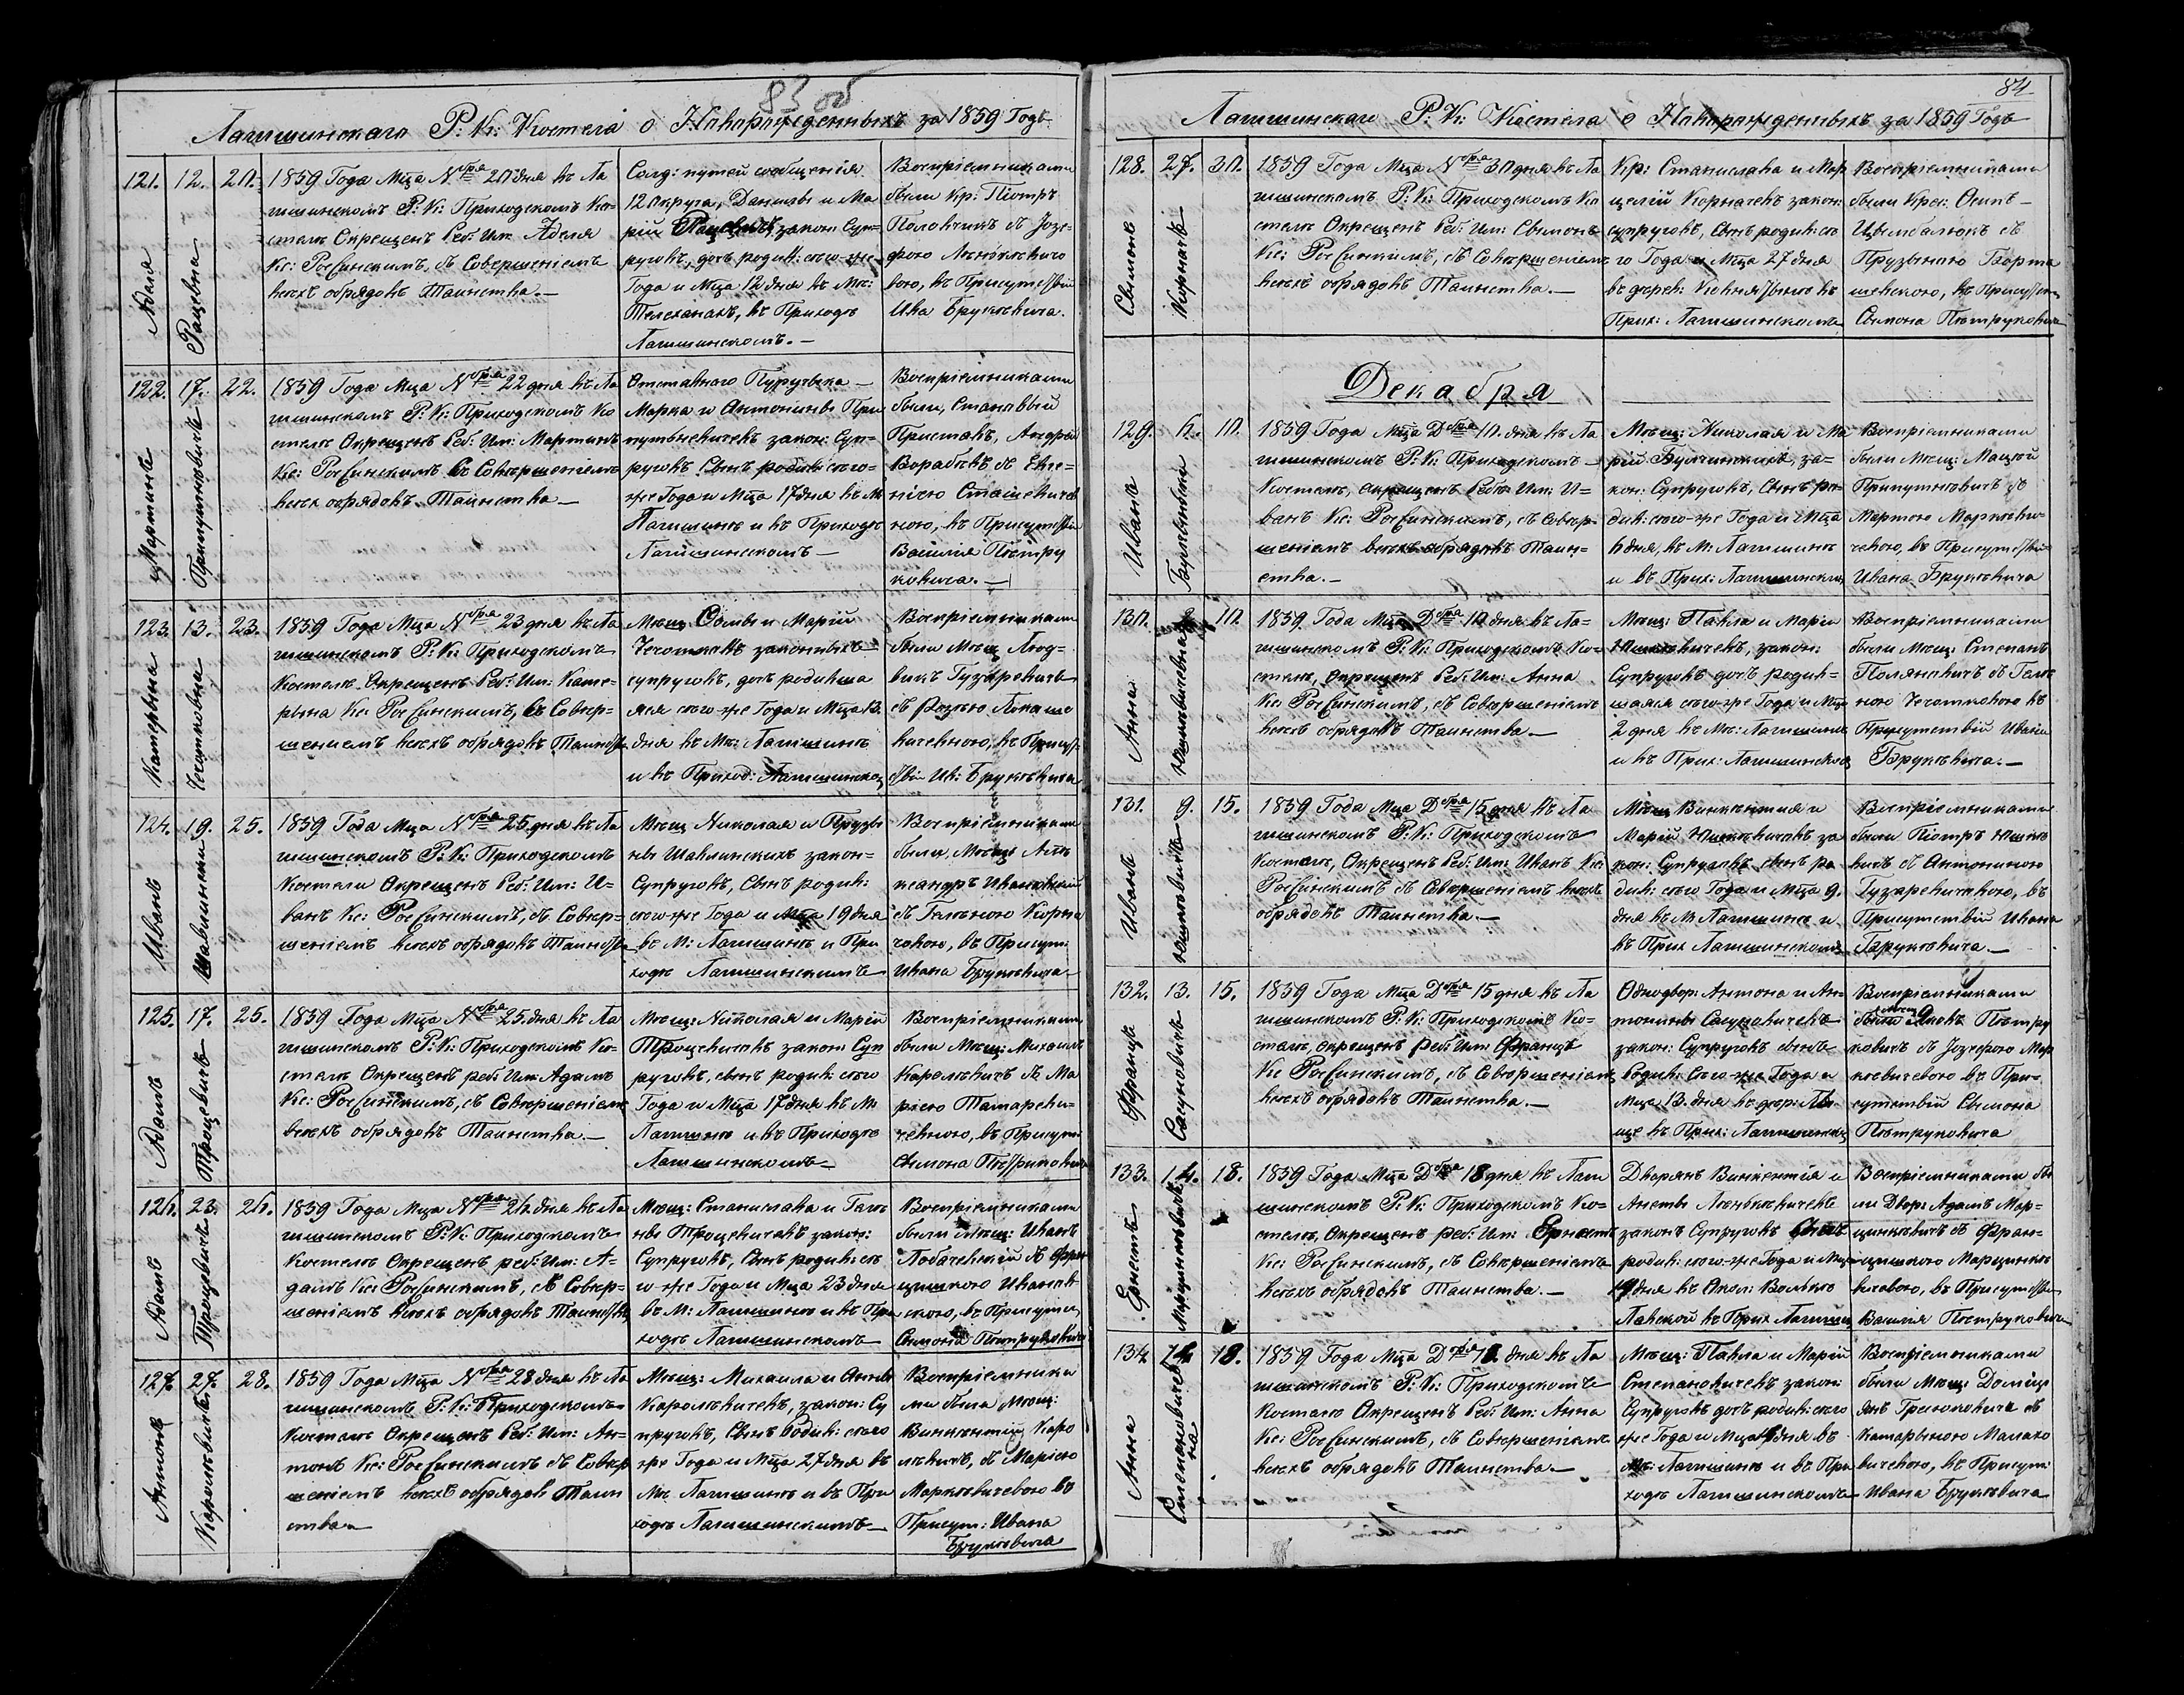 83 об
Лагишинскаго Р: К: Костела о Новорожденныхъ за 1859 Годъ
121. 12. 20.
Аделя
Рацевна
1859 Года Мца Nбря 20 дня въ Ла
гишинскомъ Р: К: Приходскомъ Ко=
стелѣ Окрещенъ Реб: Им: Аделя
Кс: Росѣинскимъ, съ Совершеніемъ
всехъ обрядовъ Таинства.—
Солд: путей сообщенія
12 Округа, Данилы и Ма
рій закон: Суп=
руговъ, дочь родив: сего-же
Года и Мца 12 дня въ Мѣ:
Телеханахъ, въ Приходѣ
Лагишинскомъ.—
Воспріемниками
были Кр: Піотръ
съ Юзе=
фою
вою, въ Присутствіи
Ива Бруковича.
122. 17. 22.
Мартинъ
Припутневичъ
1859 Года Мца Nбря 22 дня въ Ла
гишинскомъ Р: К: Приходскомъ Ко
стелѣ Окрещенъ Реб: Им: Мартинъ
Кс: Росѣинскимъ съ Совершеніемъ
всех обрядовъ Таинства—
Отставного
Марка и Антонины При
путневичевъ закон: Суп=
руговъ Сынъ родив: сего=
же Года и Мца 17 дня въ М
Лагишинѣ и въ Приходѣ
Лагишинскомъ—
Воспріемниками
были, Становый
Приставъ, Андрей
Воробьевъ съ Евге=
ніею
ною, въ Присутствіи
Василія Пѣтру
ковича.—
123. 13. 23.
Катерына
Чечотковна
1859 Года Мца Nбря 23 дня въ Ла
гишинскомъ Р: К: Приходскомъ
Костелѣ Окрещенъ Реб: Им: Кате=
рына Кс: Росѣинскимъ, съ Совер=
шеніемъ всехъ обрядовъ Таинства
Мѣщ и Марій
законныхъ
супруговъ, дочь родивша
яся сего-же Года и Мца 13.
дня въ Мѣ: Лагишинѣ
и въ Приход: Лагишинском
Воспріемниками
были Мѣщ Люд=
викъ Гузаревичъ
съ Розалією Лукаше
вичевною, въ Присут
ствіи Ив: Бруковича
124. 19. 25.
Иванъ
Шавлинскій
1859 Года Мца Nбря 25 дня въ Ла
гишинскомъ Р: К: Приходскомъ
Костели Окрещенъ Реб: Им: И=
ванъ Кс: Росѣинскимъ, съ Совер=
шеніемъ всехъ обрядовъ Таинства
Мѣщ Николая и Прузы
ны Шавлинскихъ закон=
Супруговъ, Сынъ родив:
сего-же Года и Мца 19 дня
въ М: Лагишинѣ и При
ходѣ Лагишинскомъ
Воспріемниками
были, Мѣщ: Алѣ
ксандръ Ивановскій
съ Геленою Корна
човою, въ Присут:
Ивана Бруковича—
125. 17. 25.
Адамъ
Троцевичъ
1859 Года Мца Nбря 25 дня въ Ла
гишинскомъ Р: К: Приходскомъ Ко=
стелѣ Окрещенъ реб: Им: Адамъ
Кс: Росѣинскимъ, съ Совершеніемъ
всехъ обрядовъ Таинства.—
Мѣщ: Николая и Марій
Троцевичевъ закон: Суп
руговъ, сынъ родив: сего
Года и Мца 17 дня въ М:
Лагишинѣ и въ Приходѣ
Лагишинскомъ—
Воспріемниками
были Мѣщ: Михаилъ
Каролевичъ съ Ма
ріею Татареви=
чевною, въ Присут:
Сымона Пѣтруковича
126. 23. 26.
Адамъ
Троцевичъ
1859 Года Мца Nбря 26 дня въ Ла
гишинскомъ Р: К: Приходскомъ
Костелѣ Окрещенъ реб: Им: А=
дамъ Кс: Росѣинскимъ, съ Совер=
шеніемъ всехъ обрядовъ Таинства,
Мѣщ: Станислава и Гале
ны Троцевичевъ закон:
Супруговъ, Сынъ родив: се
го-же Года и Мца 23 дня
въ М: Лагишинѣ и въ При
ходѣ Лагишинскомъ
Воспріемниками
были Мѣщ: Иванъ
Лобачевскій съ Фран
цишкою Ивановс=
кою, въ Присутст
Сымона Пѣтруковича
127. 27. 28.
Антонъ
Каролевичъ
1859 Года Мца Nбря 28 дня въ Ла
гишинскомъ Р: К: Приходскомъ
Костелѣ Окрещенъ Реб: Им: Ан=
тонъ Кс: Росѣинскимъ съ Совер
шеніемъ всехъ обрядовъ Таин
ства
Мѣщ: Михаила и Анны
Каролевичевъ, закон: Су
пруговъ, Сынъ Родив: сего
же Года и Мца 27 дня въ
Мѣ Лагишинѣ и въ При
ходѣ Лагишинскомъ—
Воспріемника
ми были Мѣщ:
Винкентій Каро
левичъ, съ Маріею
Марковичевою въ
Присут: Ивана
Бруковича
84
Лагишинскаго Р: К: Костела о Новорожденныхъ за 1859 Годъ
128. 27. 30.
Сымонъ
Корначъ
1859 Года Мца Nбря 30 дня въ Ла
гишинскомъ Р: К: Приходскомъ Ко
стелѣ Окрещенъ Реб: Им: Сымонъ
Кс: Росѣинскимъ, съ Совершеніемъ
всехъ обрядовъ Таинства.—
Кр: Станислава и Мар
целій Корначевъ закон:
супруговъ, Сынъ родив: се
го Года и Мца 27 дня
въ дерев: въ
Прих: Лагишинскомъ
Воспріемниками
были Крес: Осипъ—
Цымбалюкъ съ
Прузыною Борта
шевскою, въ Присутств
Сымона Пѣтруковича
Декабря
129. 6. 10.
Иванъ
1859 Года Мца Dбря 10 дня въ Ла
гишинскомъ Р: К: Приходскомъ—
Костелѣ, окрещенъ Реб: Им: И=
ванъ Кс: Росѣинскимъ, съ Совер=
шеніемъ всехъ обрядовъ Таин=
ства.—
Мѣщ: Николая и Ма
рій за=
кон: Супруговъ, Сынъ ро=
див: сего-же Года и Мца
6 дня, въ М: Лагишинѣ
и въ Прих: Лагишинском
Воспріемниками
были Мѣщ: Мацѣй
Припутневичъ съ
Мартою Маркови=
чевою, въ Присутстві
Ивана Бруковича
130. 10.
Анна
Юшкевичевна
1859 Года Мца Dбря 10 дня въ Ла=
гишинскомъ Р: К: Приходскомъ Ко=
стелѣ, Окрещенъ Реб: Им: Анна
Кс: Росѣинскимъ, съ Совершеніемъ
всехъ обрядовъ Таинства.—
Мѣщ: Павла и Марій
Юшкевичевъ, закон:
Супруговъ дочь родив=
шаяся сего-же Года и Мца
2 дня въ Мѣ: Лагишинѣ
и въ Прих: Лагишинском
Воспріемниками
были Мѣщ: Степанъ
съ Гале
ною въ
Присутствій Ивана
Бруковича.—
131. 9. 15.
Иванъ
Юшкевичъ
1859 Года Мца Dбря 15 дня въ Ла
гишинскомъ Р: К: Приходскомъ
Костелѣ, Окрещенъ Реб: Им: Иванъ Кс:
Росѣинскимъ съ Совершеніемъ всехъ
обрядовъ Таинства.—
Мѣщ Винкентія и
Марій Юшкевичевъ за
кон: Супруговъ сынъ ро
див: сего Года и Мца 9.
дня въ М. Лагишинѣ и
въ Прих Лагишинском
Воспріемниками
были Піотръ Юшке
вичъ съ Антониною
Гузаревичевою, въ
Присутствій Ивана
Бруковича—
132. 13. 15.
Францъ
Сасуновичъ
1859 Года Мца Dбря 15 дня въ Ла
гишинскомъ Р: К: Приходскомъ Ко=
стелѣ, окрещенъ реб: Им: Францъ
Кс Росѣинскимъ, съ Совершеніемъ
всехъ обрядовъ Таинства.—
Однодвор: Антона и Ан=
тонины Сасуновичевъ
закон: Супруговъ сынъ
Родив: Сего-же Года и
Мца 13. дня въ дер:
въ Прих: Лагишинском
Воспріемниками
были Мѣщ Яковъ Пѣтру
ковичъ съ Юзефою Мар
кевичевою въ При=
сутствій Сымона
Пѣтруковича
133. 14. 18.
Ернестъ
Марцинкевичъ
1859 Года Мца Dбря 18 дня въ Лаги
шинскомъ Р: К: Приходскомъ Ко=
стелѣ, Окрещенъ реб: Им: Ернестъ
Кс: Росѣинскимъ, съ Совершеніемъ
всехъ обрядовъ Таинства.—
Дворянъ Винкентія и
Анеты
закон: Супруговъ Сынъ
родив: сего-же Года и Мца
дня въ Окол:
въ Прих Лагишин
Воспріемниками бы
ли Двор: Адамъ Мар=
цинкевичъ съ Фран=
цишкою Марцинке
вичевою, въ Присутстви
Василія Пѣтруковича
134. 18.
Анна
Степановичевна
1859 Года Мца Dбря 18 дня въ Ла
гишинскомъ Р: К: Приходскомъ
Костелѣ Окрещенъ Реб: Им: Анна
Кс: Росѣинскимъ, съ Совершеніемъ
всехъ обрядовъ Таинства—
Мѣщ: Павла и Марій
Степановичевъ закон:
Супруговъ дочь родив: сего
же Года и Мца дня въ
Мѣ: Лагишинѣ и въ При
ходѣ Лагишинскомъ
Воспріемниками
были Мѣщ: Домиц
янъ съ
Катарыною Малахо
вичевою, въ Присут:
Ивана Бруковича